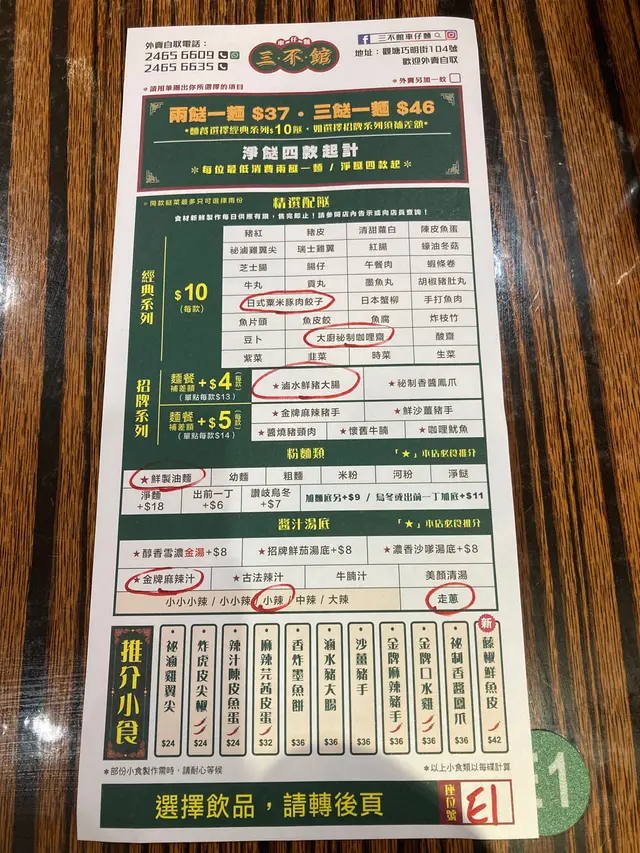 外賣自取電話：
2465 6609
2465 6635
車仔麵
三不館
三不館車仔麵
地址：觀塘巧明街104號
歡迎外賣自取
*請用筆圈出你所選擇的項目
*外賣另加一蚊
兩餸一麵 $37・三餸一麵 $46
*麵餐選擇經典系列$10餸，如選擇招牌系列須補差額*
淨餸四款起計
*每位最低消費兩餸一麵 / 淨餸四款起*
精選配餸
食材新鮮製作每日供應有限，售完即止！請參閱店內告示或向店員查詢！
經典系列
$10
(每款)
豬紅 豬皮 清甜蘿白 陳皮魚蛋
祕滷雞翼尖 瑞士雞翼 紅腸 蠔油冬菇
芝士腸 腸仔 午餐肉 蝦條卷
牛丸 貢丸 墨魚丸 胡椒豬肚丸
日式粟米豚肉餃子 日本蟹柳 手打魚肉
魚片頭 魚皮餃 魚腐 炸枝竹
豆卜 大廚祕制咖喱齋 酸齋
紫菜 韭菜 時菜 生菜
招牌系列
麵餐補差額 +$4 (每款)
(單點每款$13)
★滷水鮮豬大腸 ★祕制香醬鳳爪
麵餐補差額 +$5 (每款)
(單點每款$14)
★金牌麻辣豬手 ★鮮沙薑豬手
★醬燒豬頸肉 ★懷舊牛腩 ★咖喱魷魚
粉麵類
「★」本店必食推介
★鮮製油麵 幼麵 粗麵 米粉 河粉 淨餸
淨麵 +$18 出前一丁 +$6 讚岐烏冬 +$7 加麵底另+$9 / 烏冬或出前一丁加底+$11
醬汁湯底
「★」本店必食推介
★醇香雪濃金湯+$8 ★招牌鮮茄湯底+$8 ★濃香沙嗲湯底+$8
★金牌麻辣汁 ★古法辣汁 牛腩汁 美顏清湯
小小小辣 / 小小辣 / 小辣 / 中辣 / 大辣 走蔥
推介小食
祕滷雞翼尖 $24
炸虎皮尖椒 $24
辣汁陳皮魚蛋 $24
麻辣芫茜皮蛋 $32
香炸墨魚餅 $36
滷水豬大腸 $36
沙薑豬手 $36
金牌麻辣豬手 $36
金牌口水雞 $36
祕制香醬鳳爪 $36
新
藤椒鮮魚皮 $42
*部份小食製作需時，請耐心等候
*以上小食類以每碟計算
選擇飲品，請轉後頁
座位號
E1
E1